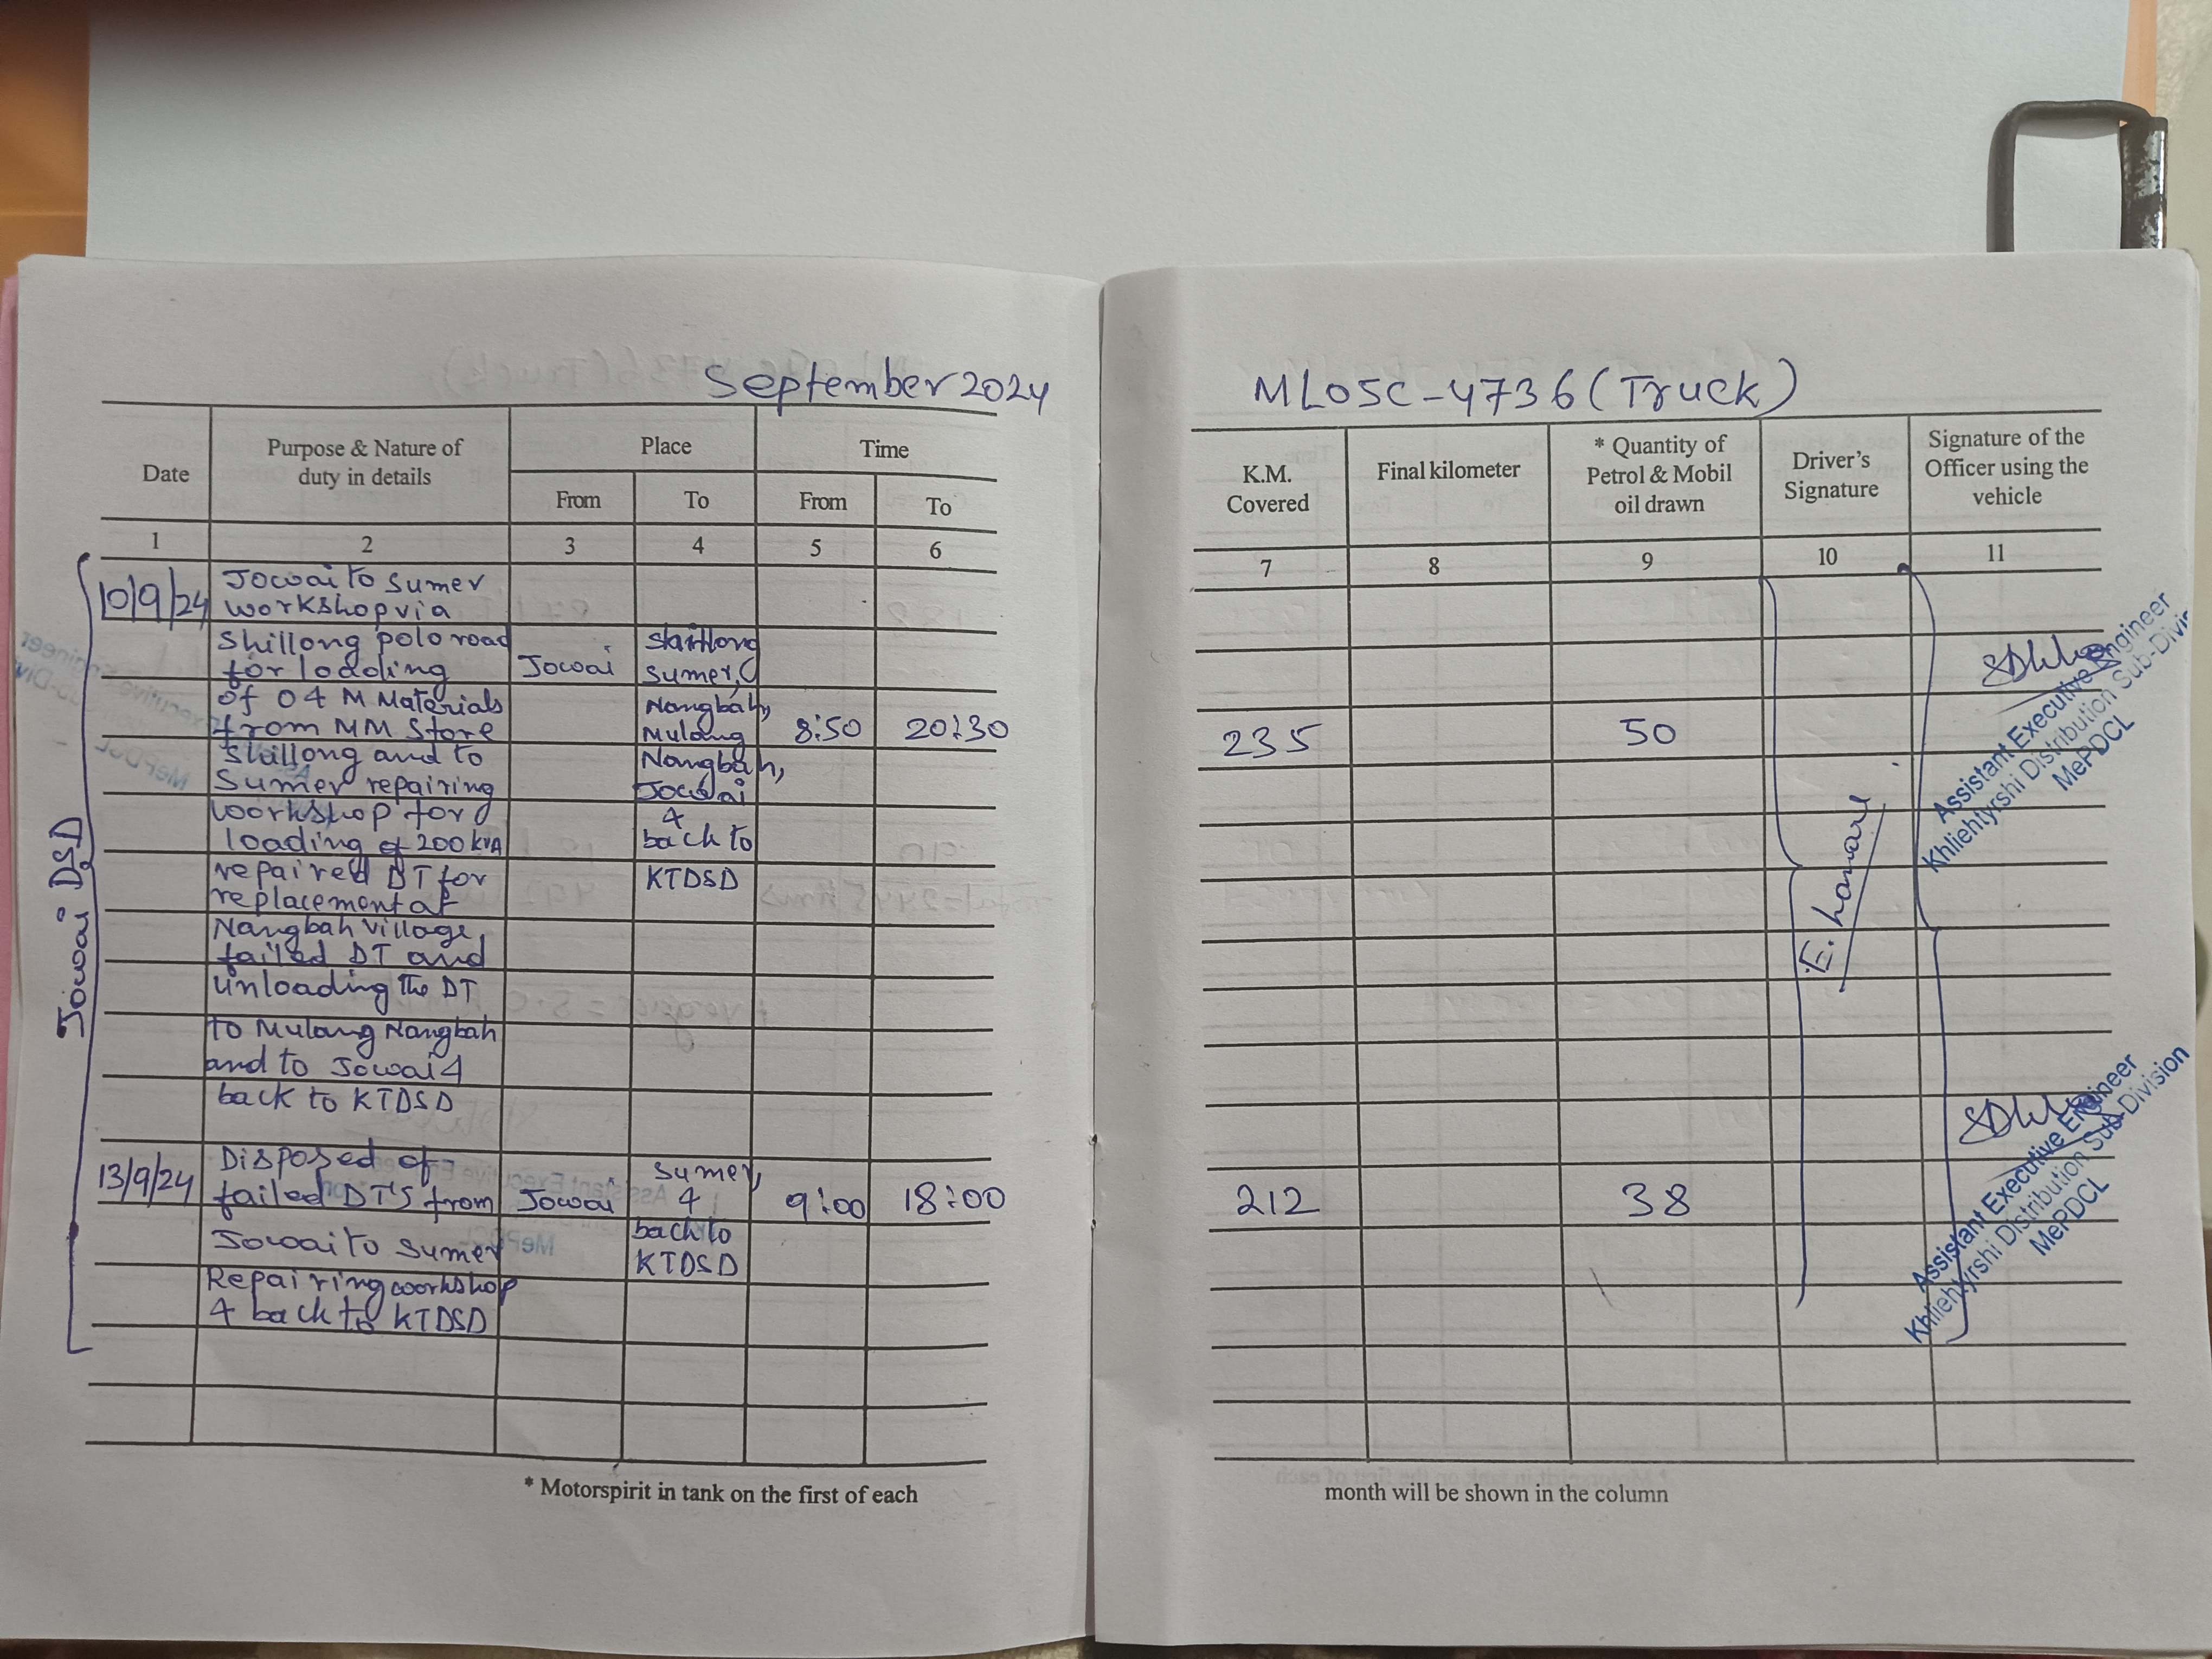 September 2024
Date
Purpose & Nature of
duty in details
Place
Time
From
To
From
To
1
2
3
4
5
6
10/9/24
Jowai to Sumer
workshop via
Shillong polo road
for loading
of O & M Materials
from MM Store
Shillong and to
Sumer repairing
workshop for
loading of 200 kVA
repaired DT for
replacement at
Nangbah village
failed DT and
unloading the DT
to Mulang Nangbah
and to Jowai &
back to KTDSD
Jowai
Shillong
Sumer,
Nangbah,
Mulang
Nangbah,
Jowai
&
back to
KTDSD
8:50
20:30
13/9/24
Disposed of
failed DT'S from
Jowai to Sumer
Repairing workshop
& back to KTDSD
Jowai
Sumer,
&
back to
KTDSD
9:00
18:00
Jowai DSD
* Motorspirit in tank on the first of each
ML05C-4736 (Truck)
K.M.
Covered
Final kilometer
* Quantity of
Petrol & Mobil
oil drawn
Driver's
Signature
Signature of the
Officer using the
vehicle
7
8
9
10
11
235
50
Assistant Executive Engineer
Khliehtyrshi Distribution Sub-Divis
MePDCL
212
38
Assistant Executive Engineer
Khliehtyrshi Distribution Sub-Division
MePDCL
month will be shown in the column